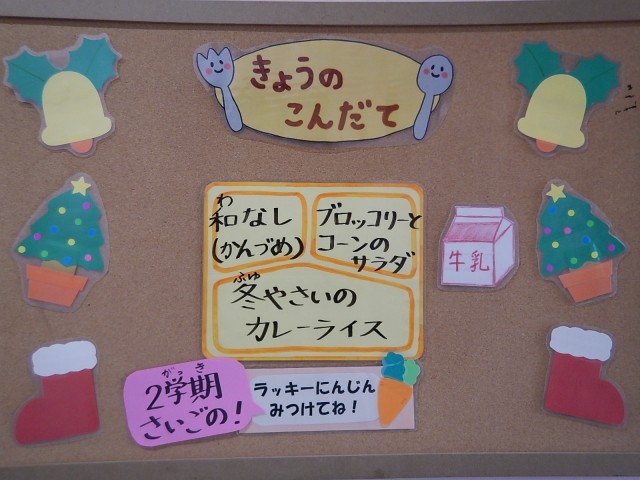 きょうの
こんだて
和なし
わ
(かんづめ)
ブロッコリーと
コーンの
サラダ
牛乳
冬やさいの
ふゆ
カレーライス
2学期
がっき
さいごの!
ラッキーにんじん
みつけてね!